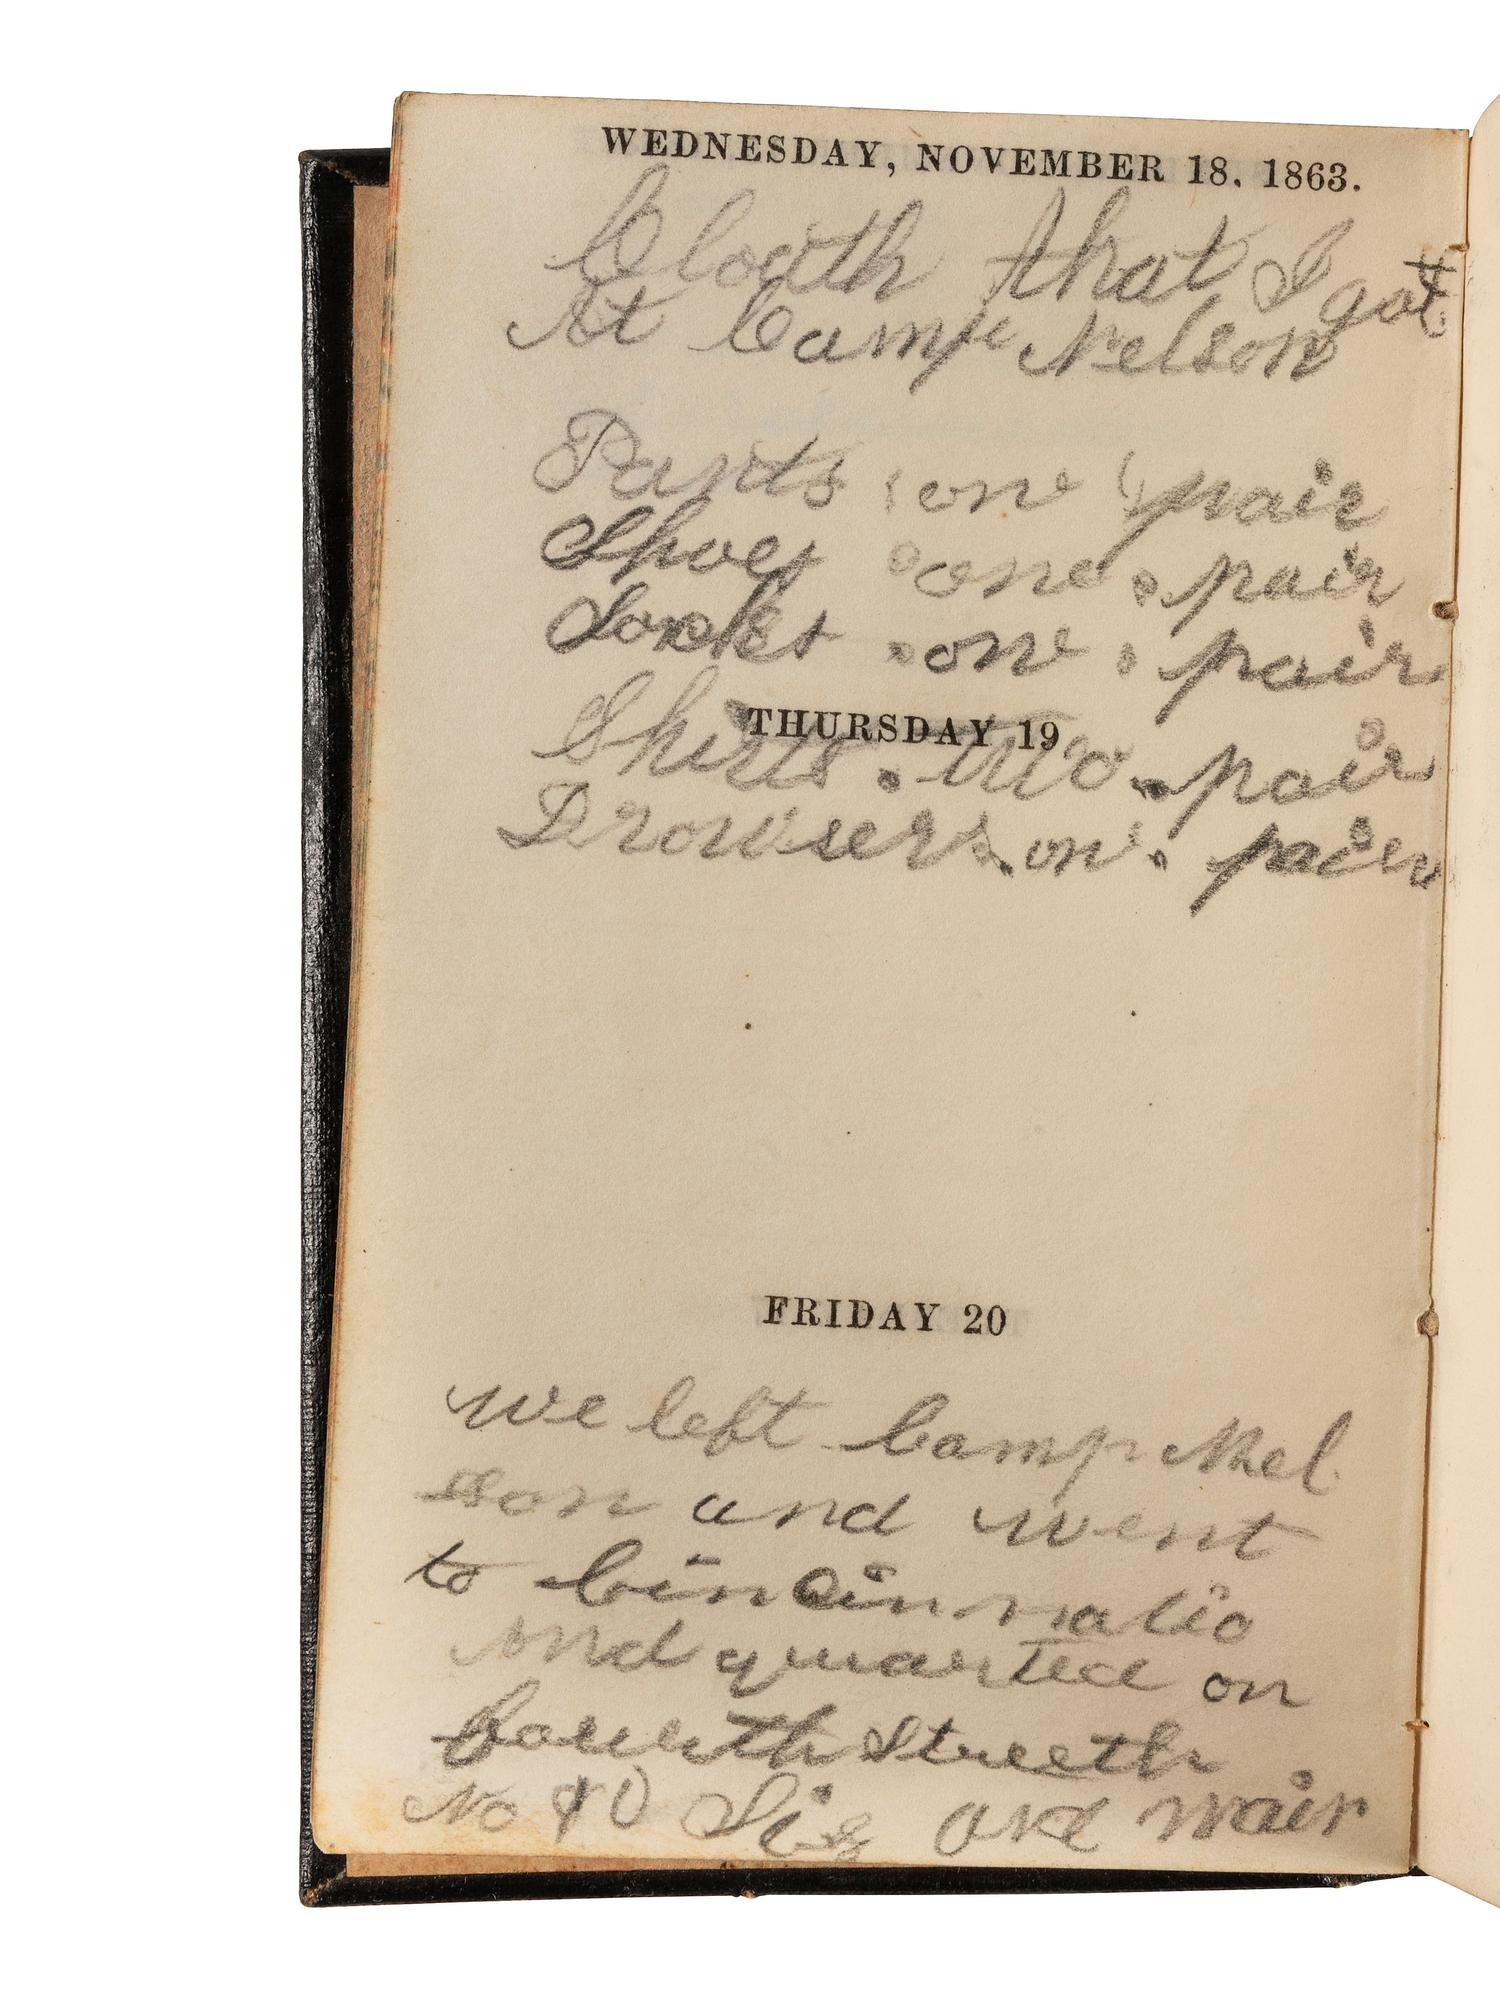 WEDNESDAY, NOVEMBER 18. 1863.
Cloath that I got
At Camp Nelson
Pants one pair
Shoes one pair
Sockes one pair
THURSDAY 19
Shirts two pair
Drowsers one pair
FRIDAY 20
we left Camp Nel
son and went
to Cincinnatio
and quarted on
Fourth Streeth
No